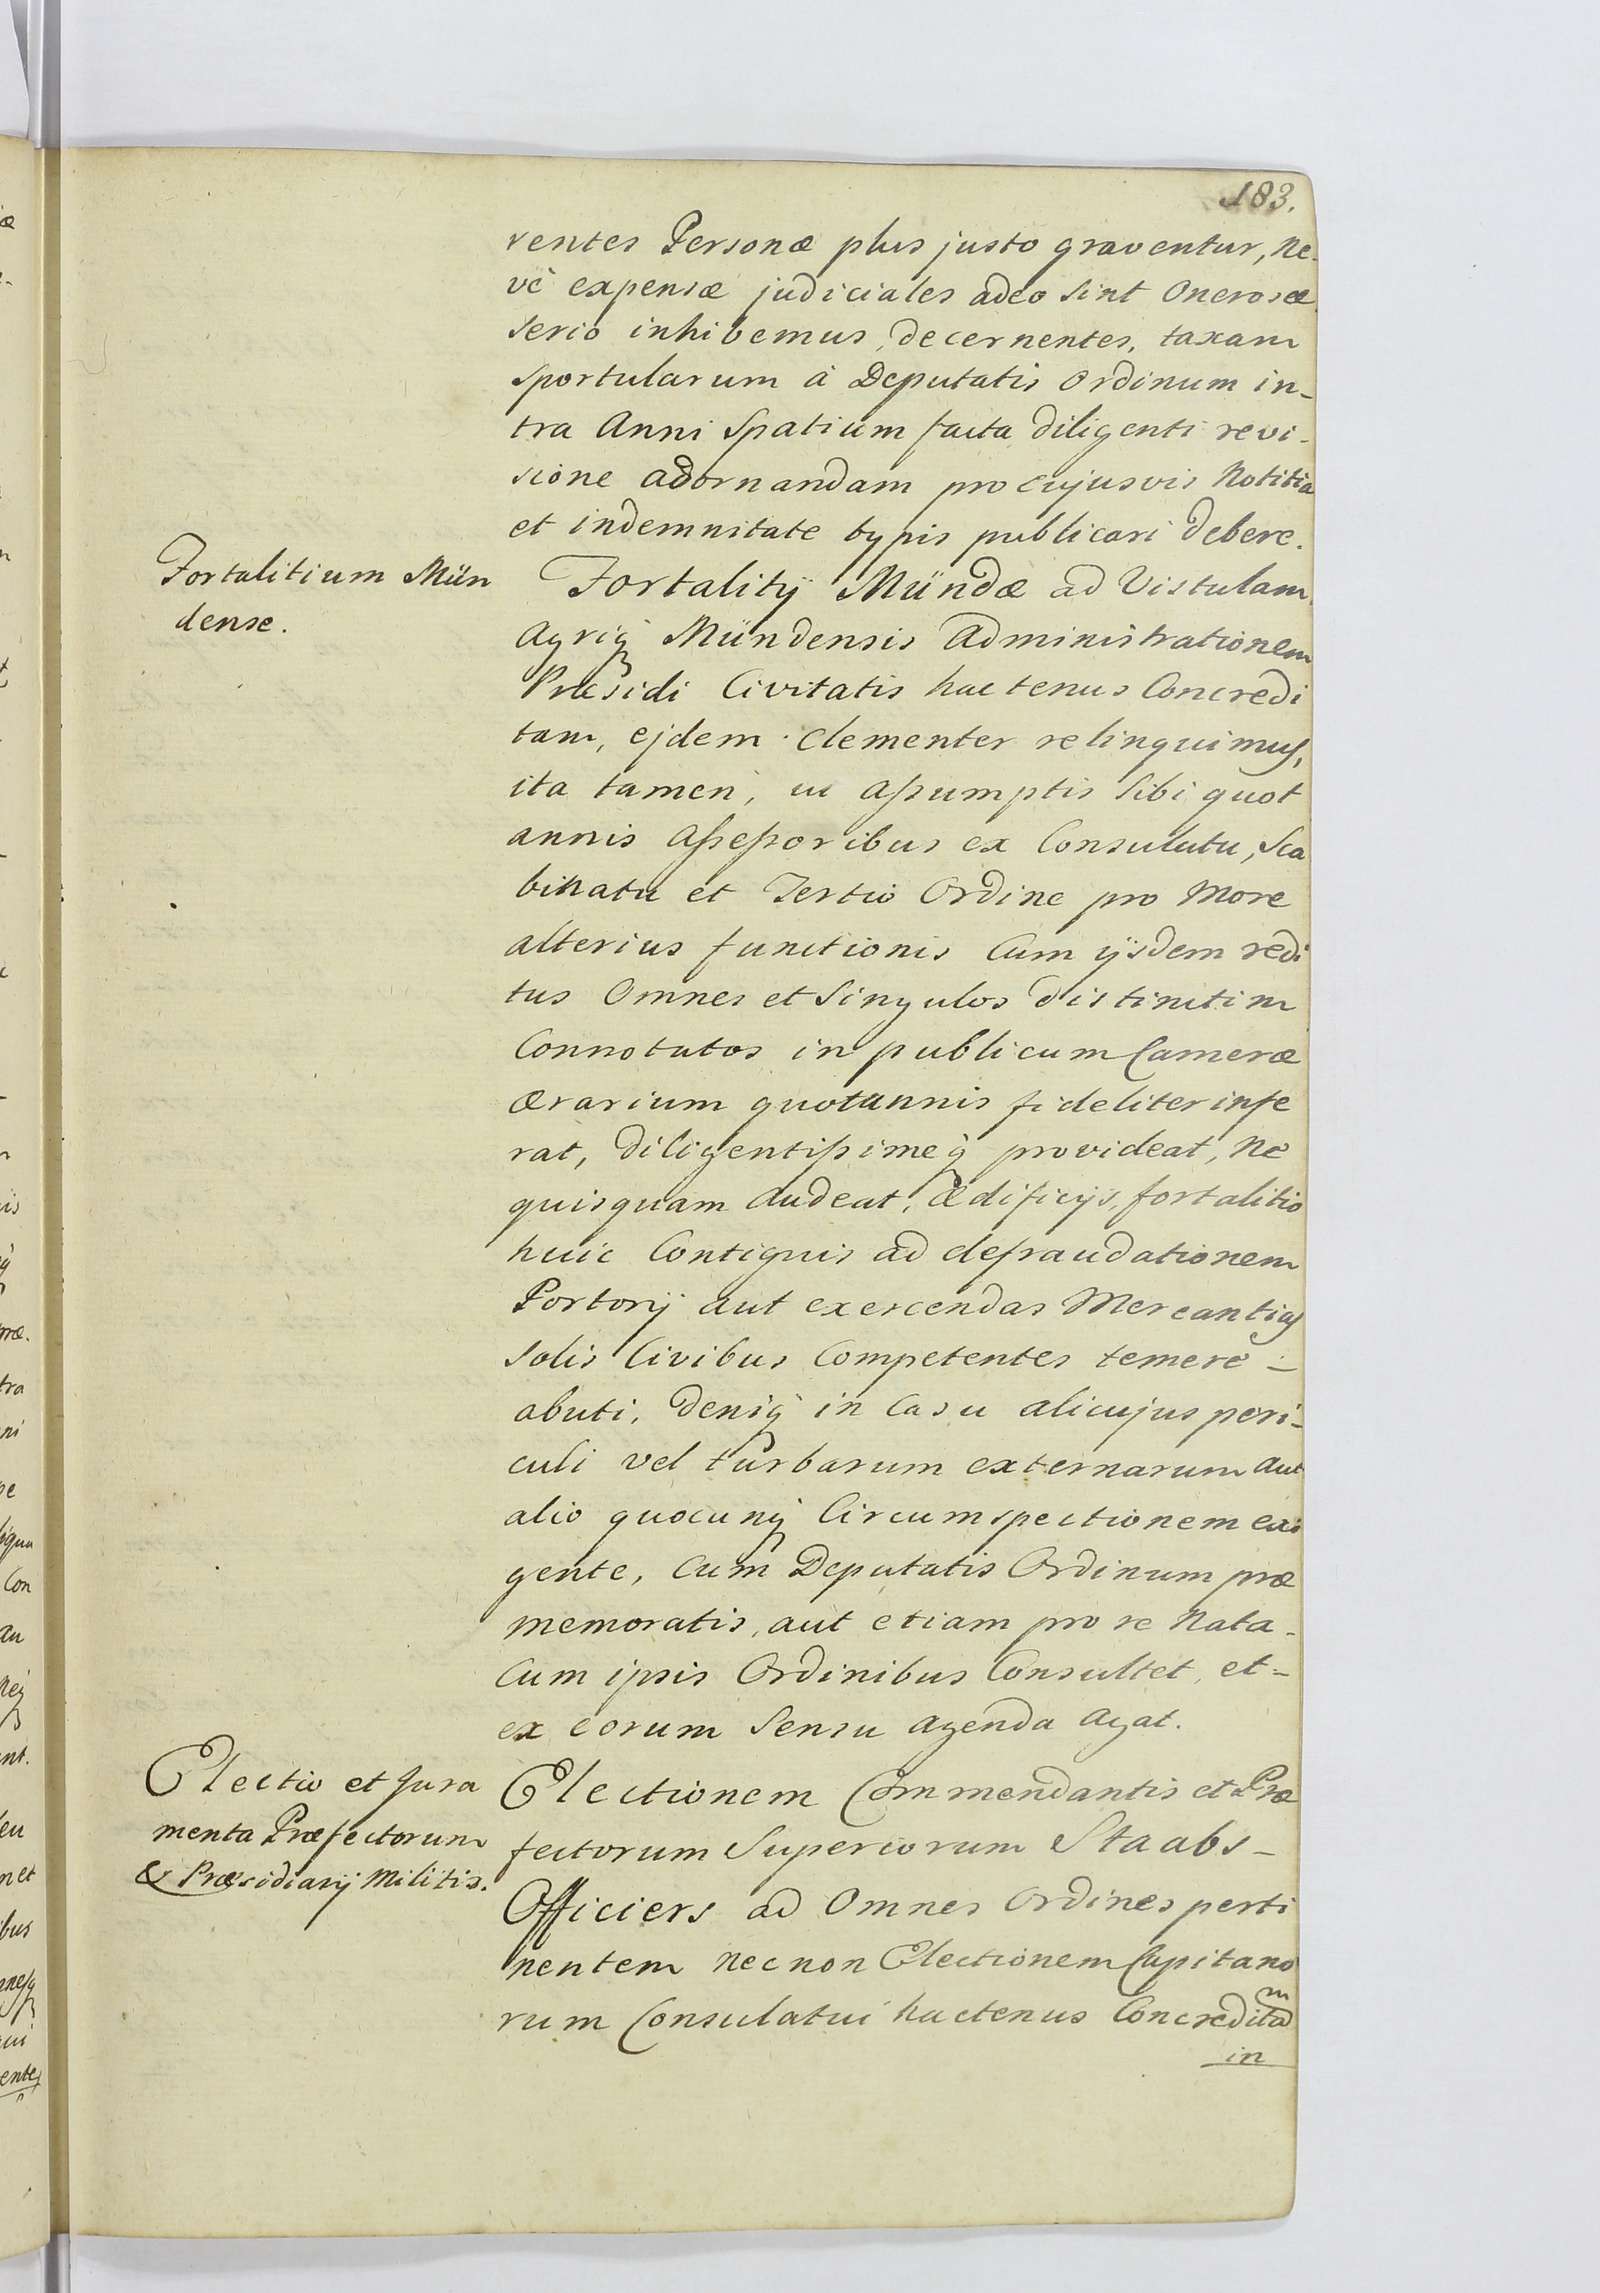 183.
rentes Personæ plus justo graventur, Ne-
vè expensæ judiciales adeo sint Onerosæ
serio inhibemus, decernentes, taxam
sportularum à Deputatis Ordinum in-
tra Anni Spatium facta diligenti revi-
sione adornandam pro cujusvis Notitia
et indemnitate typis publicari debere.
Fortalitium Mün
dense.
Fortalitÿ Mündæ ad Vistulam,
Agriq Mündensis Administrationem
Præsidi Civitatis hactenus Concredi
tam, ejdem Clementer relinquimus,
ita tamen, ut assumptis sibi quot
annis Assessoribus ex Consulatu, Sca
binatu et Tertio Ordine pro More
alterius functionis Cum ijsdem redi
tus Omnes et Singulos distinctim
Connotatos in publicum Cameræ
ærarium quotannis fideliter infe
rat, diligentissimeq provideat, Ne
quisquam Audeat, ædificijs, fortalitio
huic Contiguis ad defraudationem
Portorij aut exercendas Mercantias
solis Civibus Competentes temerè -
abuti, deniq in Casu alicujus peri-
culi vel turbarum externarum aut
alio quocunq Circumspectionem exi
gente, Cum Deputatis Ordinum præ
memoratis, aut etiam pro re Nata -
Cum ipsis Ordinibus Consultet, et -
ex eorum Sensu Agenda Agat.
Electio et Jura
menta Præfectorum
& Præsidiarij Militis.
Electionem Commendantis et Præ
fectorum Superiorum Staabs-
Officiers ad Omnes Ordines perti
nentem nec non Electionem Capitano
rum Consulatui hactenus Concreditam
in